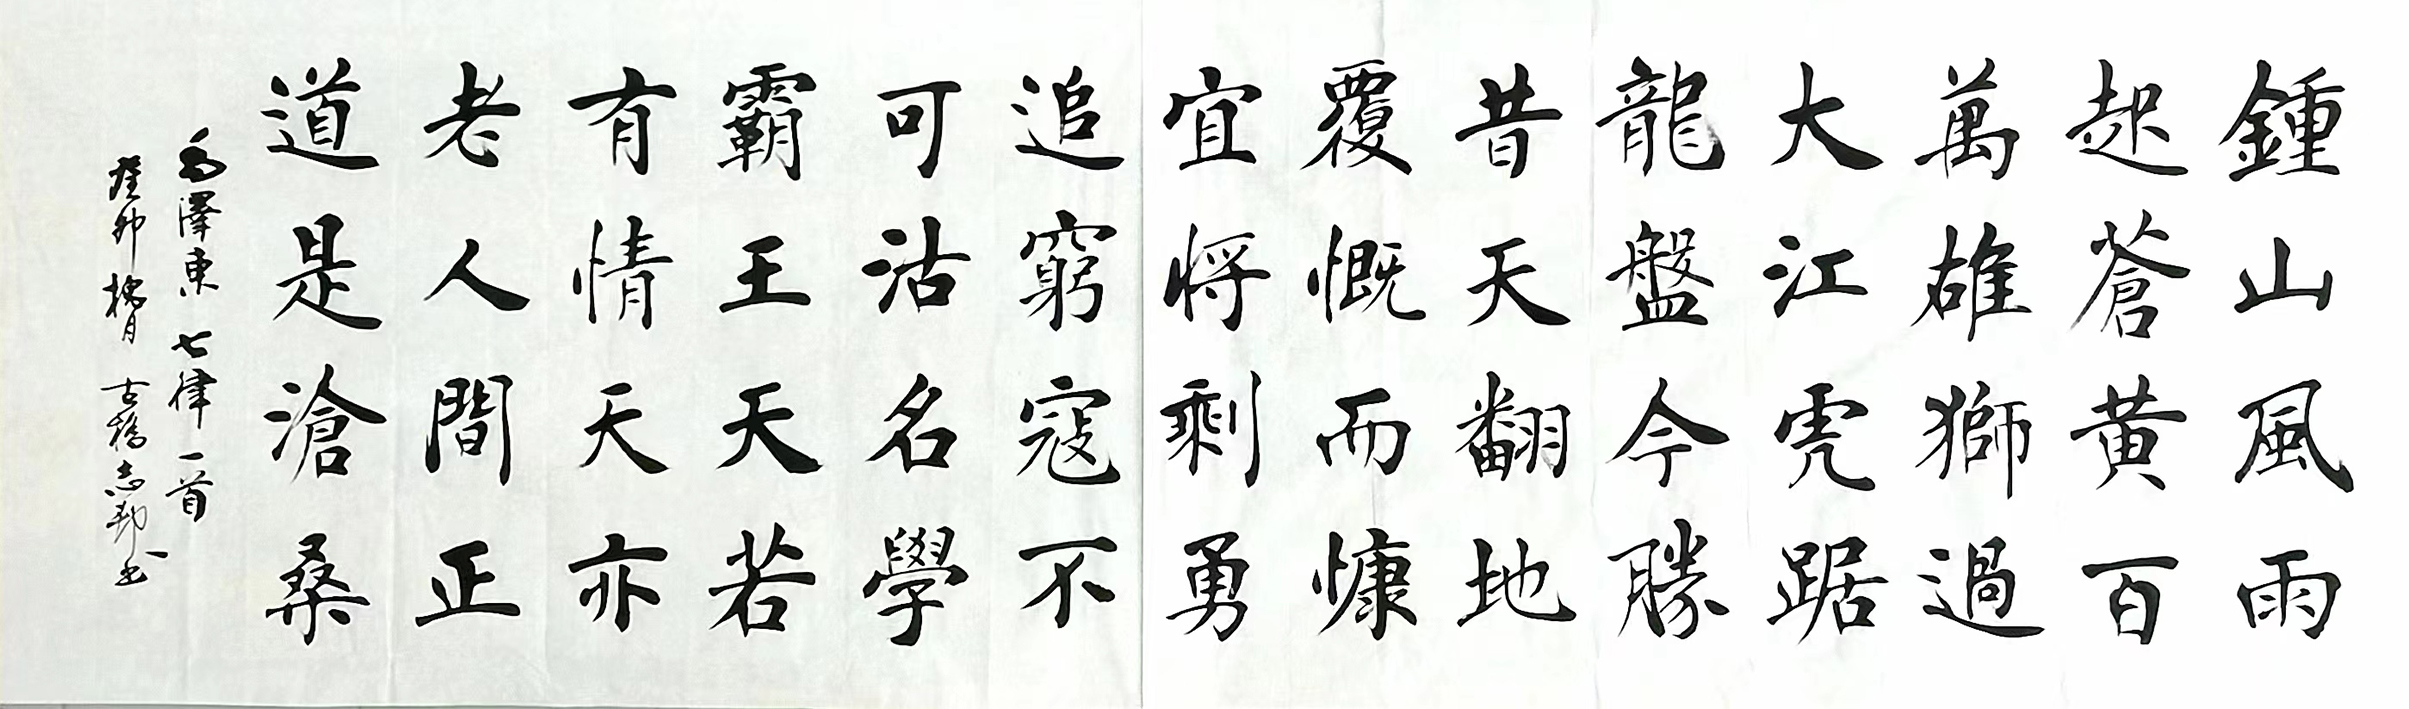 鍾山風雨
起蒼黄百
萬雄獅過
大江虎踞
龍盤今勝
昔天翻地
覆慨而慷
宜将剩勇
追窮寇不
可沽名學
霸王天若
有情天亦
老人間正
道是滄桑
毛澤東七律一首
癸卯槐月古橋志勤书